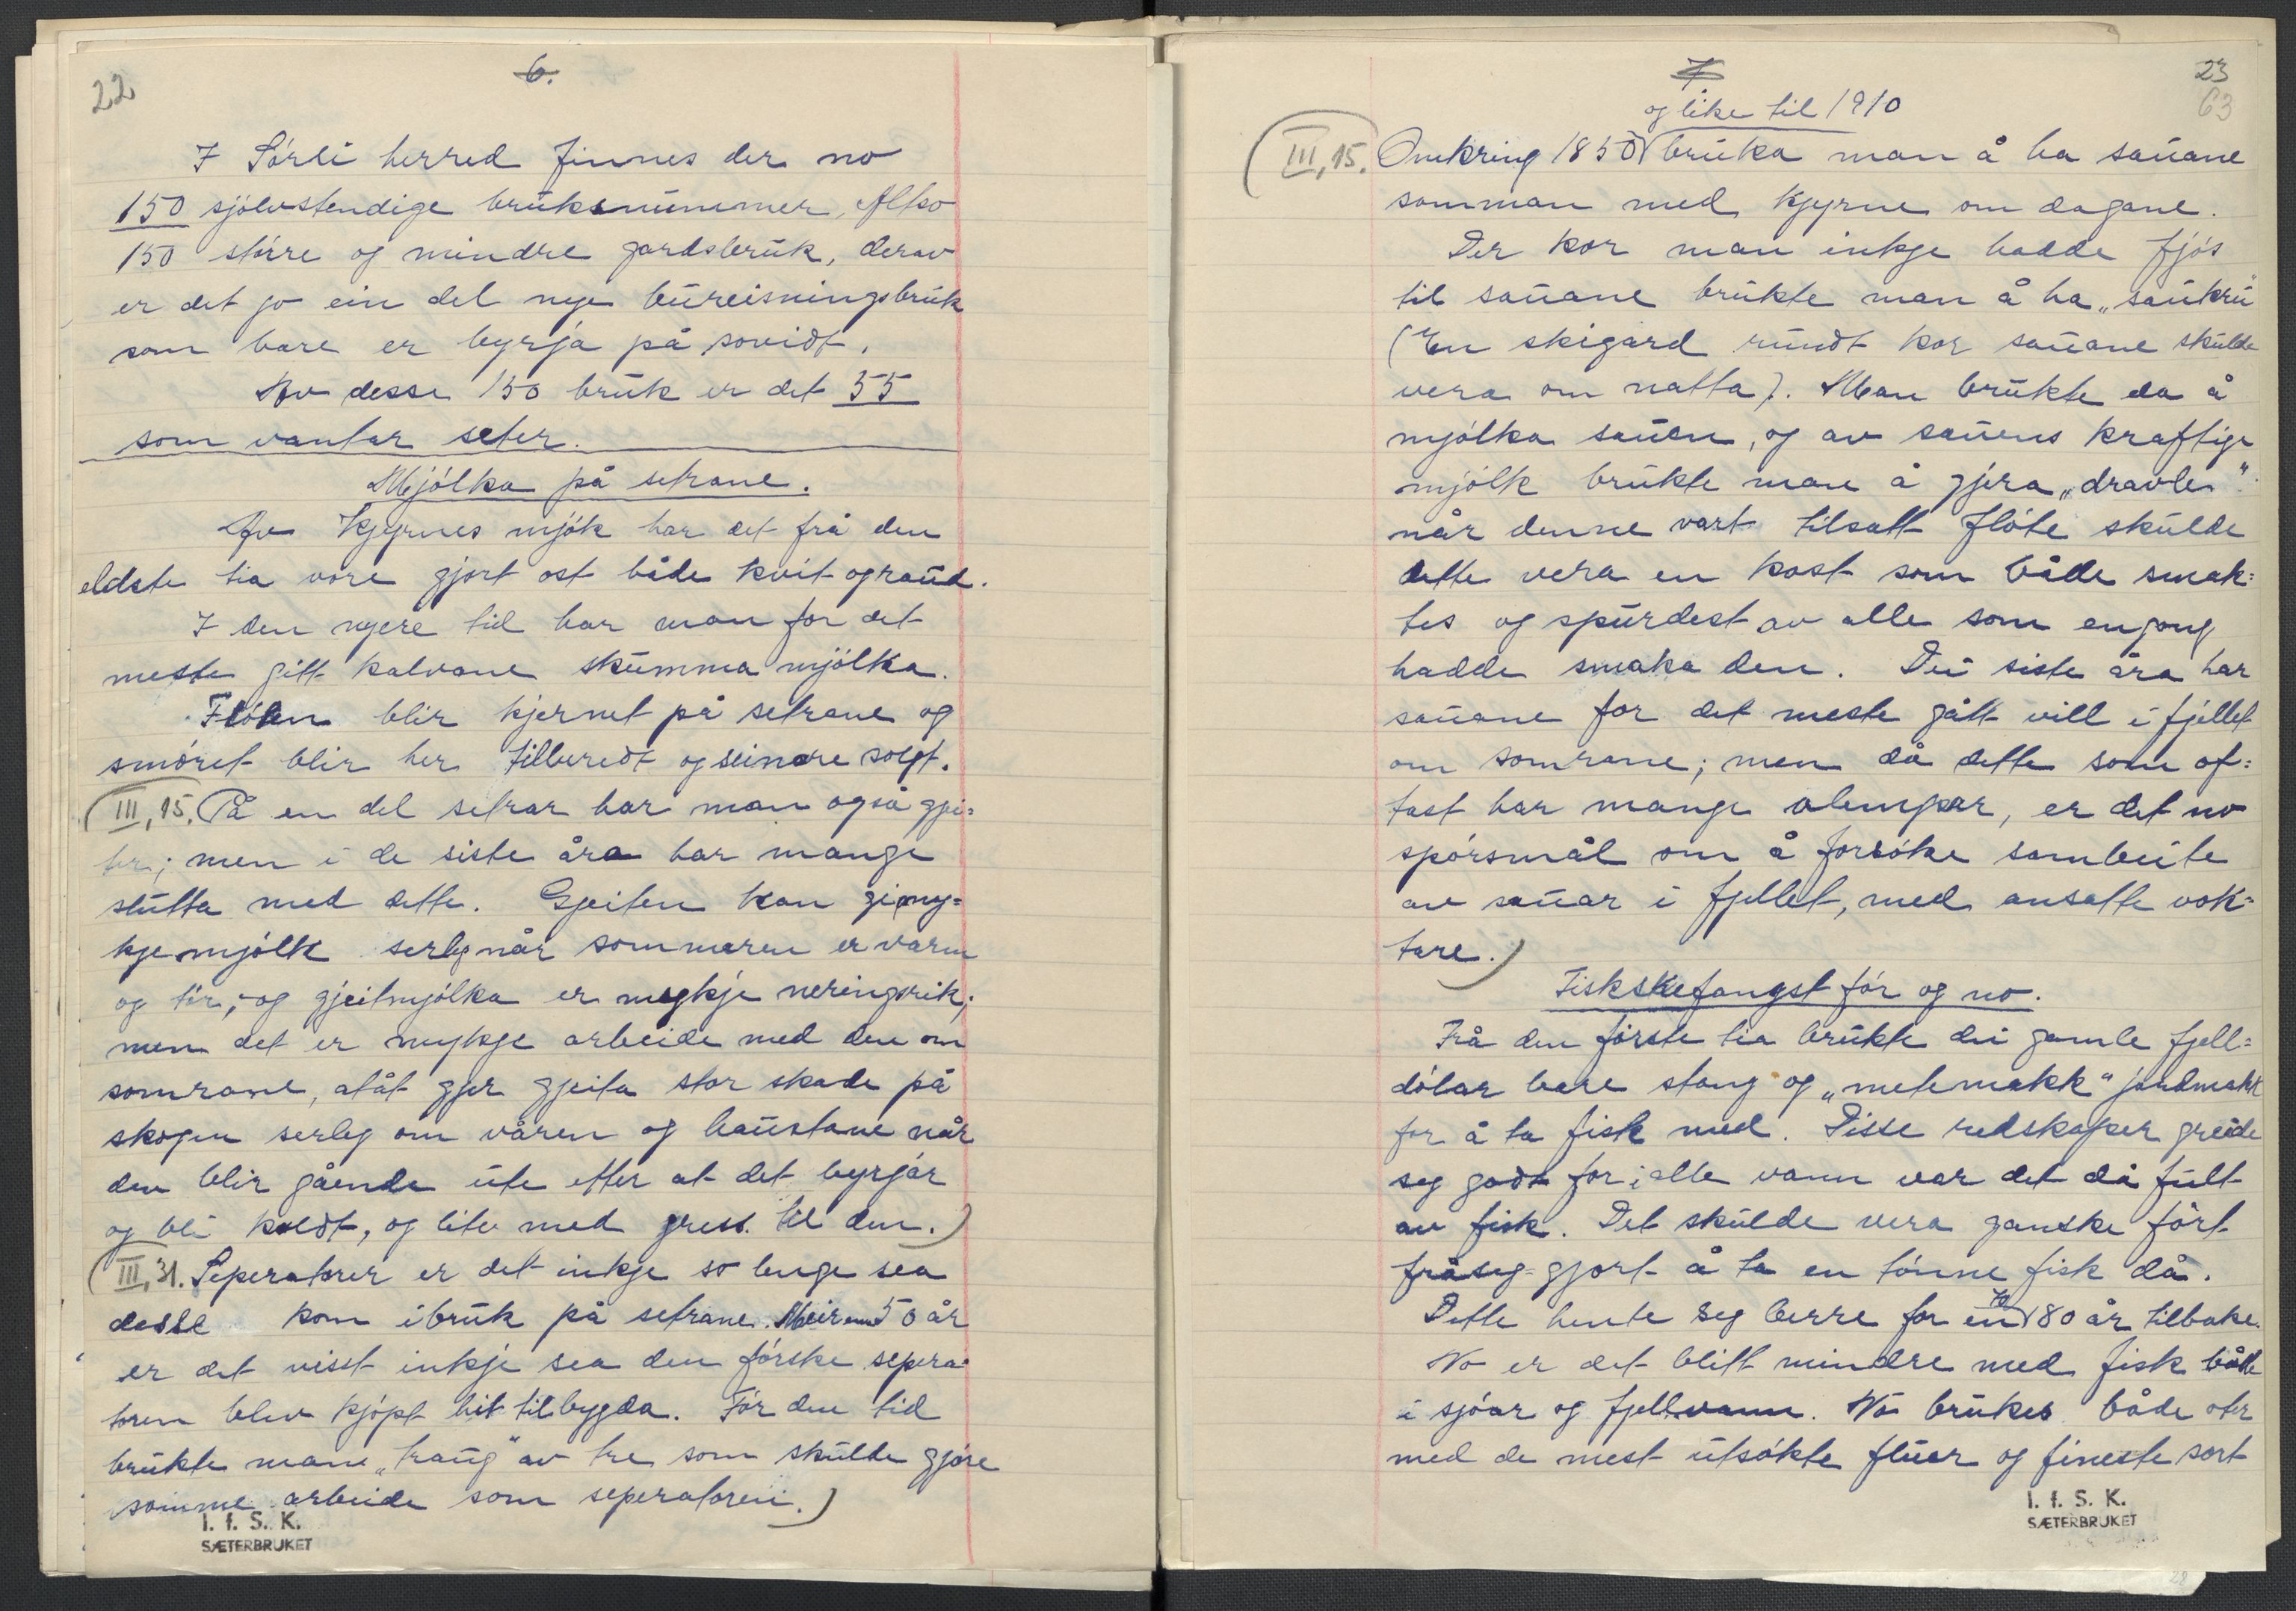 22
6.
I Sörli herred finnes der no
150 sjölvstendige bruksnummer, Altso
150 större og mindre gardsbruk, derav
er det jo ein del nye bureisningsbruk
som bare er byrja på sovidt.
Av desse 150 bruk er det 55
som vantar seter.
Mjólka på setrane.
Av Kjyrnes mjók har det frå den
eldste tia vore gjort ost både kvit og raud.
I den nyere tid har man for det
meste gitt kalvane skumma mjölka.
Flóten blir kjernet på setrane og
smöret blir her tilberedt og seinare solgt.
(III, 15. På en del setrar har man også gjei=
ter; men i de siste åra har mange
slutta med dette. Gjeiten kan gi my=
kje mjólk serleg når sommeren er varm
og tör, og gjeitmjólka er mykje neringsrik;
men det er mykje arbeide med den om
somrane, atåt gjer gjeita stor skade på
skogen serleg om våren og haustane når
den blir gående ute etter at det byrjar
og bli koldt, og lite med gress til den.)
(III, 31. Seperatorer er det inkje so lenge sea
desse kom i bruk på setrane. Meir enn 50 år
er det visst inkje sea den förske sepera=
toren blev kjópt hit til bygda. För den tid
brukte mane „traug" av tre som skulde gjóre
somme arbeide som seperatoren.)
I. f. S. K.
SÆTERBRUKET
7
23
63
og like til 1910
(III, 15. Omkring 1850 bruka man å ha sauane
somman med Kjyrne om dagane.
Der kor man inkje hadde fjós
til sauane brukte man å ha „saukru"
(En skigard rundt kor sauane skulde
vera om natta). Man brukte da å
mjólka sauen, og av sauens kraftige
mjólk brukte man å gjera „dravle"
når denne vart tilsatt flóte skulde
dette vera en kost som både smak=
tes og spurdest av alle som engong
hadde smaka den. Dei siste åra har
sauane for det meste gått vill i fjellet
om somrane; men då dette som of=
tast har mange ulemper, er det no
spórsmål om å forsóke sambeite
av sauar i fjellet, med ansatte vok=
tare.)
Fiskskefangst fór og no.
Frå den fórste tia brukte dei gamle fjell=
dólar bare stang og „metemakk" jordmakk
for å ta fisk med. Disse redskaper greide
seg godt for i alle vann var det då fult
av fisk. Det skulde vera ganske fórt
fråseg-gjort å ta en tónne fisk då.
Dette hente seg berre for en 70 80 år tilbake.
No er det blitt mindre med fisk både
i sjóar og fjellvann. No brukes både oter
med de mest utsókte fluer og fineste sort
I. f. S. K.
SÆTERBRUKET
28